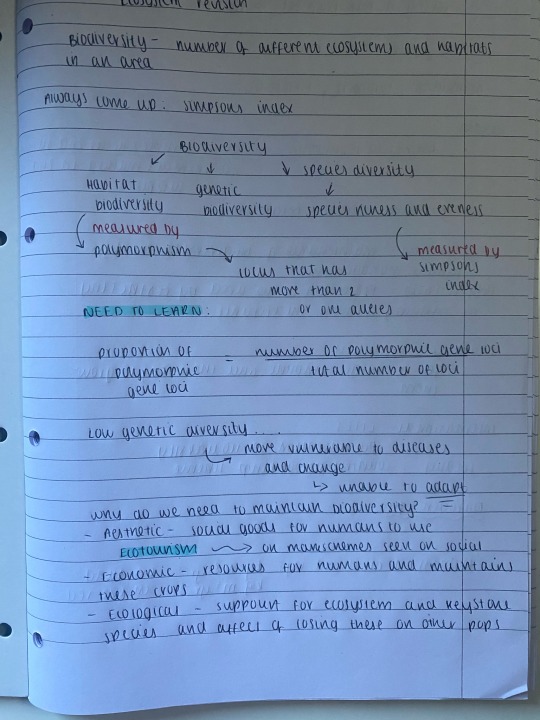 Ecosystem revision
Biodiversity - number of different ecosystems and habitats
in an area
Always come up: simpsons index
Biodiversity
Habitat biodiversity
genetic biodiversity
species diversity
species richness and eveness
measured by
polymorphism
locus that has
more than 2
or one alleles
measured by
simpsons
index
NEED TO LEARN:
proportion of
polymorphic
gene loci
= number of polymorphic gene loci
total number of loci
Low genetic diversity....
more vulnerable to diseases
and change
unable to adapt
why do we need to maintain biodiversity?
- Aesthetic - social goods for humans to use
ECOTOURISM on seen on social
- Economic - resources for humans and maintains
these crops
- Ecological - support for ecosystem and keystone
species and affect of losing these on other pops